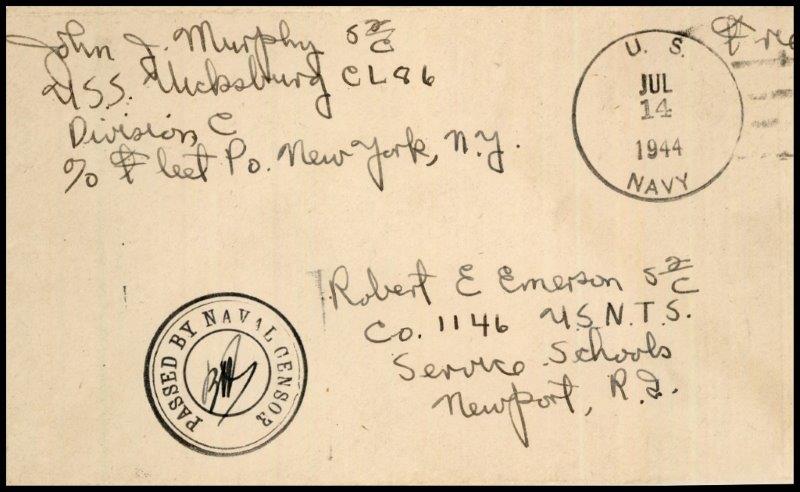 John J. Murphy S 2/C
U.S.S. Vicksburg CL 86
Division C
c/o Fleet Po. New York, N.Y.
Free
U. S.
JUL
14
1944
NAVY
Robert E Emerson S 2/C
Co. 1146 U.S.N.T.S.
Service Schools
Newport, R.I.
PASSED BY NAVAL CENSOR